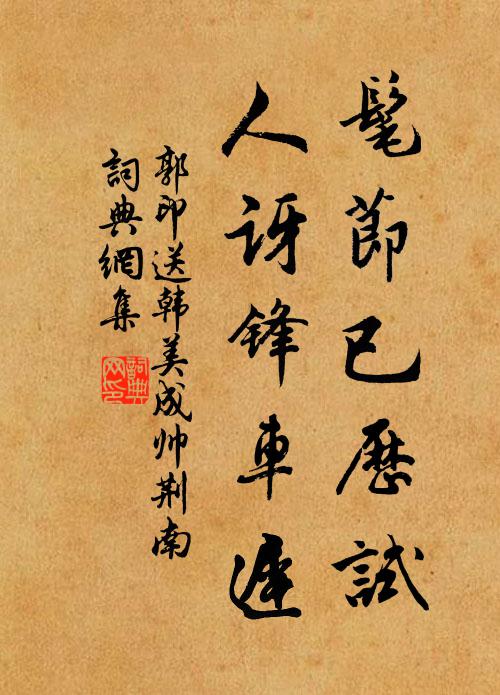 髦節已歷試
人訝锋車遲
郭印送韩美成帅荆南
詞典網集
詞典网印